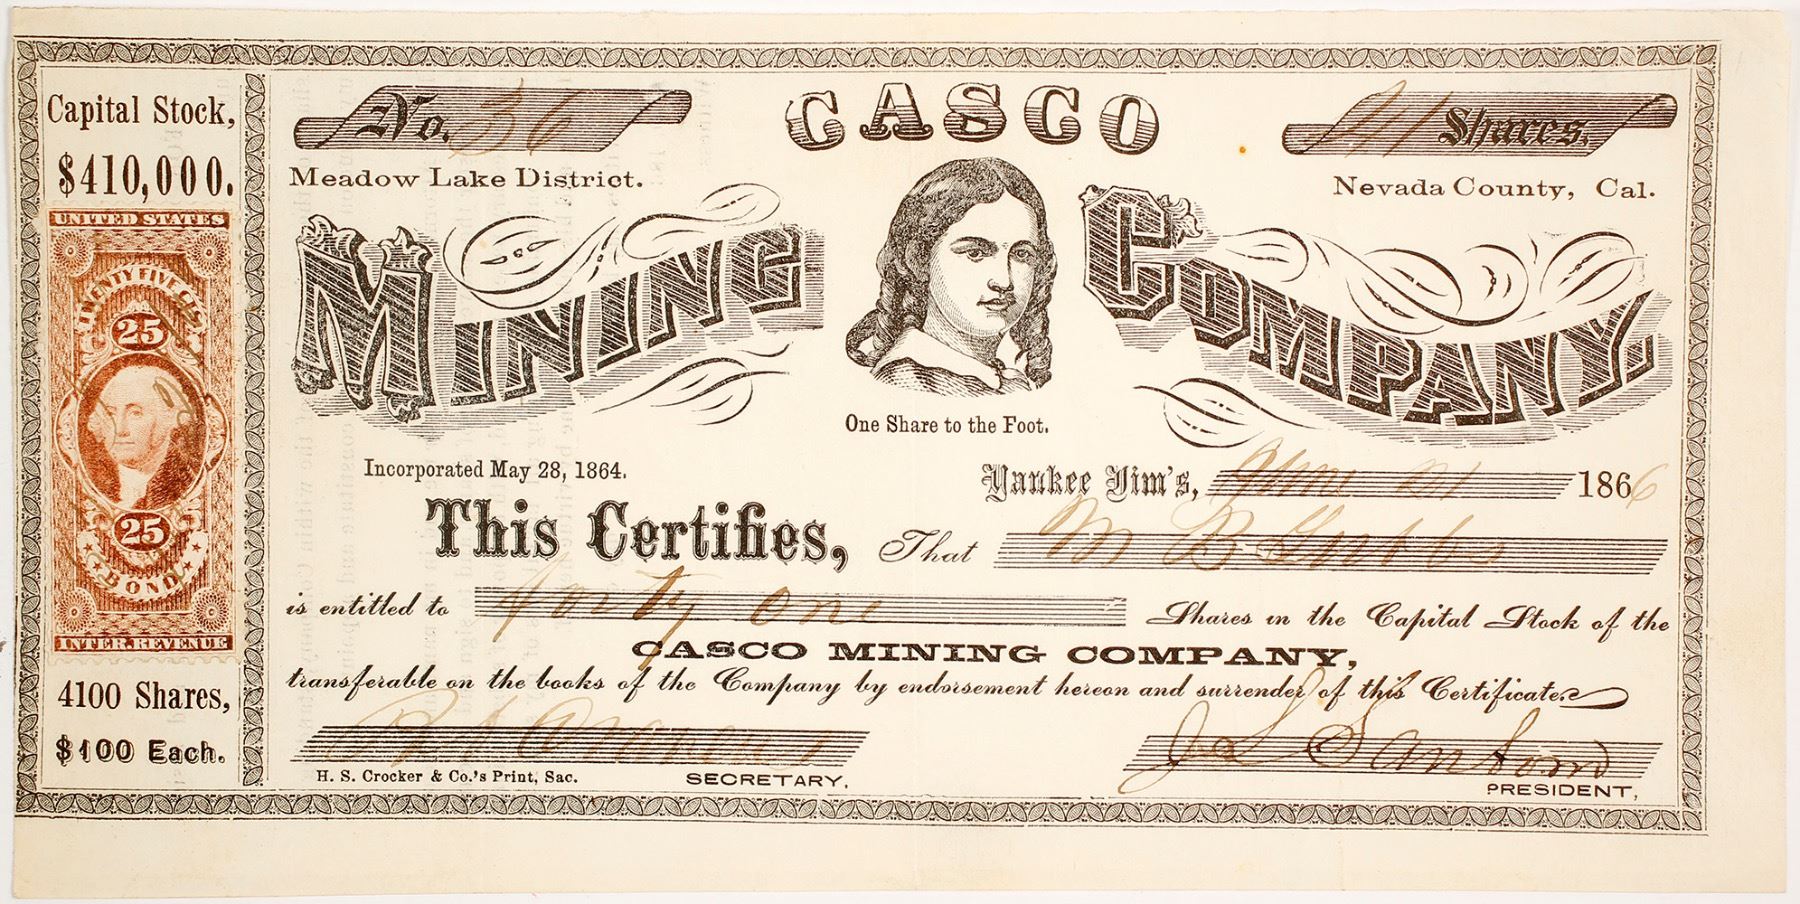 Capital Stock,
$410,000.
UNITED STATES
TWENTY FIVE CTS
25
25
BOND
INTER. REVENUE
4100 Shares,
$100 Each.
No. 36
CASCO
41 Shares.
Meadow Lake District.
Nevada County, Cal.
MINING COMPANY.
One Share to the Foot.
Incorporated May 28, 1864.
Yankee Jim's, June 21 1866
This Certifies, That M B Tubbs
is entitled to forty one Shares in the Capital Stock of the
CASCO MINING COMPANY,
transferable on the books of the Company by endorsement hereon and surrender of this Certificate.
Jas Sanborn
H. S. Crocker & Co.'s Print, Sac.
SECRETARY.
PRESIDENT,